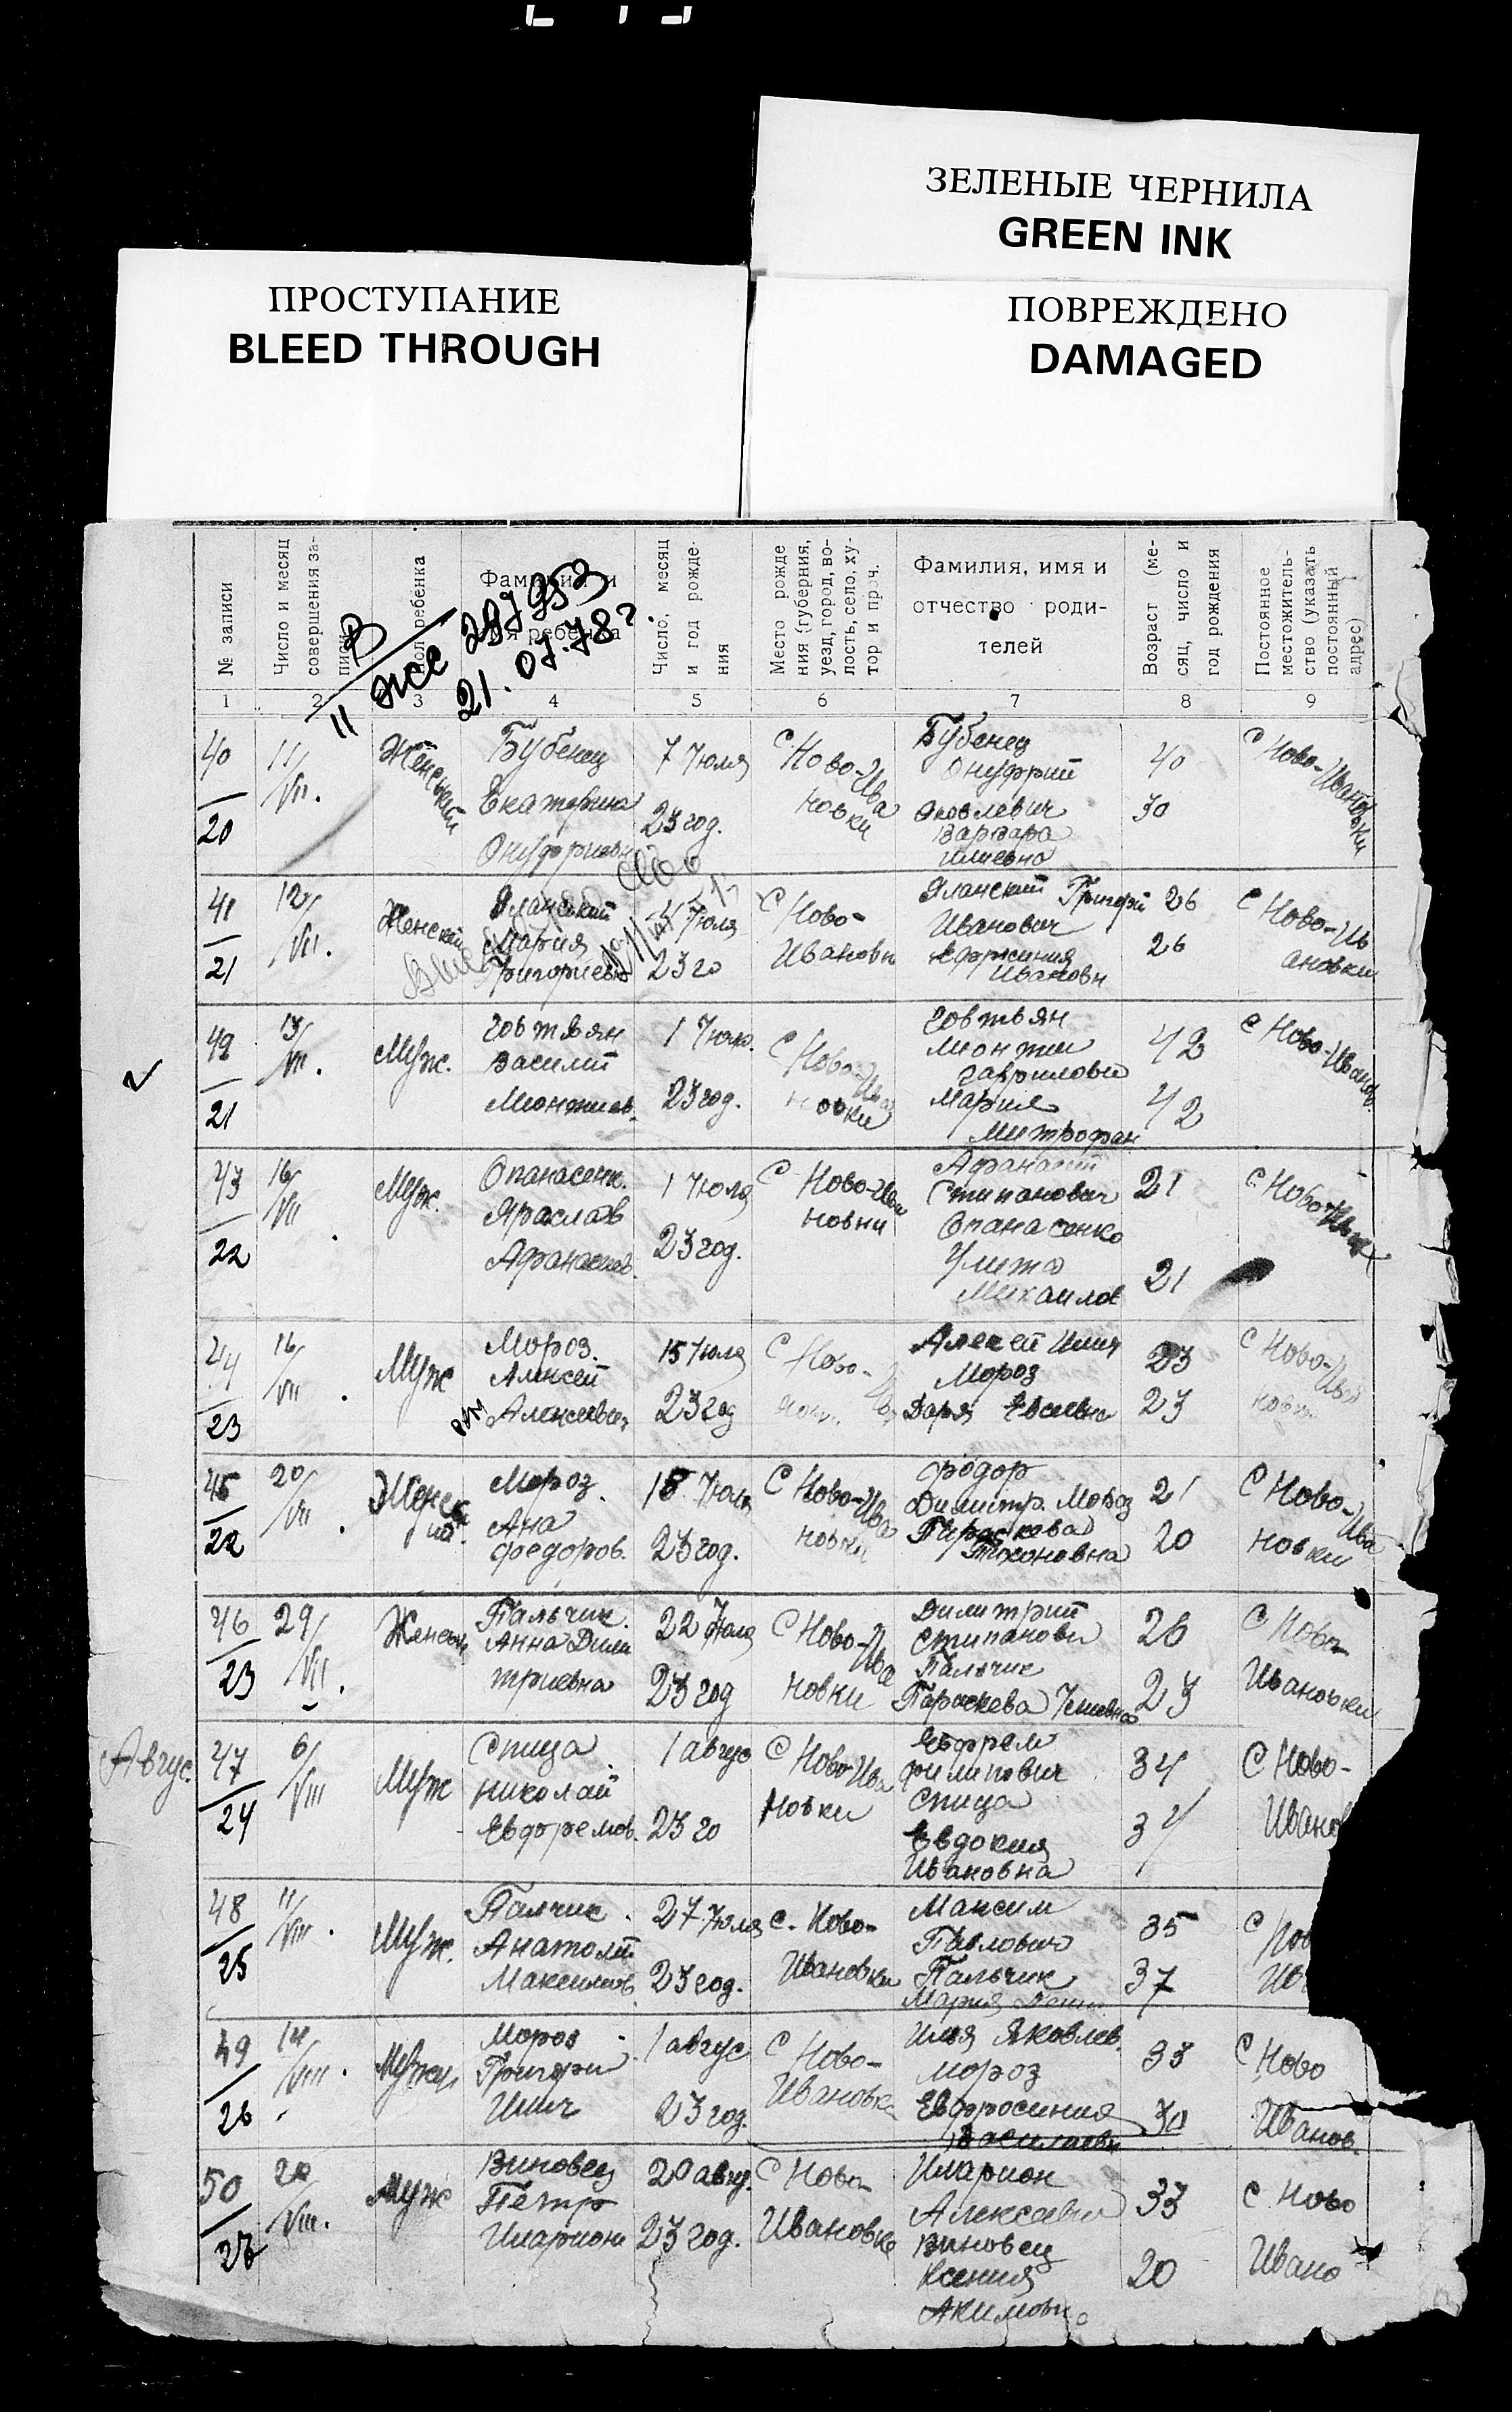 ЗЕЛЕНЫЕ ЧЕРНИЛА
GREEN INK
ПРОСТУПАНИЕ
BLEED THROUGH
ПОВРЕЖДЕНО
DAMAGED
№ записи
Число и месяц
совершения за-
писи
Пол ребенка
Фамилия и
имя ребенка
Число, месяц
и год рожде-
ния
Место рожде
ния (губерния,
уезд, город, во-
лость, село, ху-
тор и проч.
Фамилия, имя и
отчество роди-
телей
Возраст (ме-
сяц, число и
год рождения
Постоянное
местожитель-
ство (указать
постоянный
адрес)
21.07.78г.
1 2 3 4 5 6 7 8 9
40
20
11/VII.
Женский
Бубенец
Екатерина
7 Июля
23 год.
С Ново-Ива
новки
Бубенец
Онуфрий
Яковлевич
Варвара
Илиевна
40
30
С Ново-Ивановки
41
21
12/VII.
Женский
Яланский
Мария
Июля
23 го
С Ново-
Ивановк
Яланский Григорй
Иванович
Ефрсиния
Ивановн
26
26
С Ново-Ив
ановки
42
21
13/VII.
Муж.
Говтвян
Василий
1 Июл.
23 год.
С Ново-Ива
новки
Говтвян
Гаврилови
Мария
Митрофан
42
42
С Ново-Иванов.
43
22
16/VII
Муж.
Опанасенк.
Яраслав
Афанасиев.
1 Июля
23 год.
С Ново-Ива
новки
Афанасий
Стипанович
Опанасенко
Улита
Михаилов
21
21
С Ново-Ива
44
23
16/VII.
Муж
Мороз.
Алексей
Алексеевич
15 Июля
23 год
С Ново-
Алексей Илич
Мороз
Даря Евсеевна
23
23
С Ново-Ива
новки
45
22
20/VII.
Женск
Мороз.
Ана
Федоров.
18 Июля
23 год.
С Ново-Ива
новки
Фёдор
Димитр. Мороз
Параскева
Тихоновна
21
20
С Ново-Ива
новки
46
23
29/VII.
Женск
Пальчик.
Анна Дими
триевна
22 Июля
23 год
С Ново-Ива
новки
Димитрий
Стипанови
Пальчик
Параскева
26
23
С Ново-
Ивановки
Авгус.
47
24
6/VIII
Муж
Спица
Николай
Евфремов.
1 авгус
23 го
С Ново-Ива
новки
Евфрем
Филипович
Спица
Евдокия
Ивановна
34
34
С Ново-
Ивано
48
25
11/VIII.
Муж.
Палчик
Анатолй
Максимов
27 Июля
23 год.
с. Ново-
Ивановки
Максим
Павлович
Пальчик
Мария
35
37
С Нов
Ив
49
26
14/VIII.
Муж
Мороз
Григори
Илич
1 авгус
23 год.
С Ново-
Ивановка
Илья Яковлев.
Мороз
Евфросиния
Василиевн
33
30
С Ново
Иванов.
50
27
20/VIII.
Муж
Виновец
Пётро
Иларион
20 авгу.
23 год.
С Ново-
Ивановке
Иларион
Алексееви
Виновец
Ксения
Акимовн
33
20
С Ново
Ивано